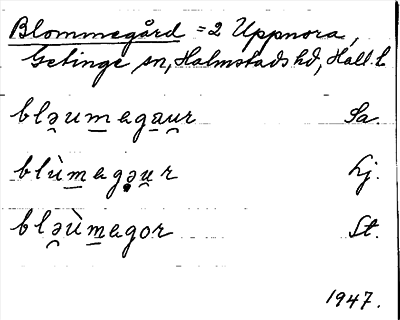 Blommegård = 2 Uppnora,
Getinge sn, Halmstads hd, Hall. l.
blə̯umega̯u̯r Sa.
blùmegə̯u̯r Lj.
blə̯ùmegor St.
1947.